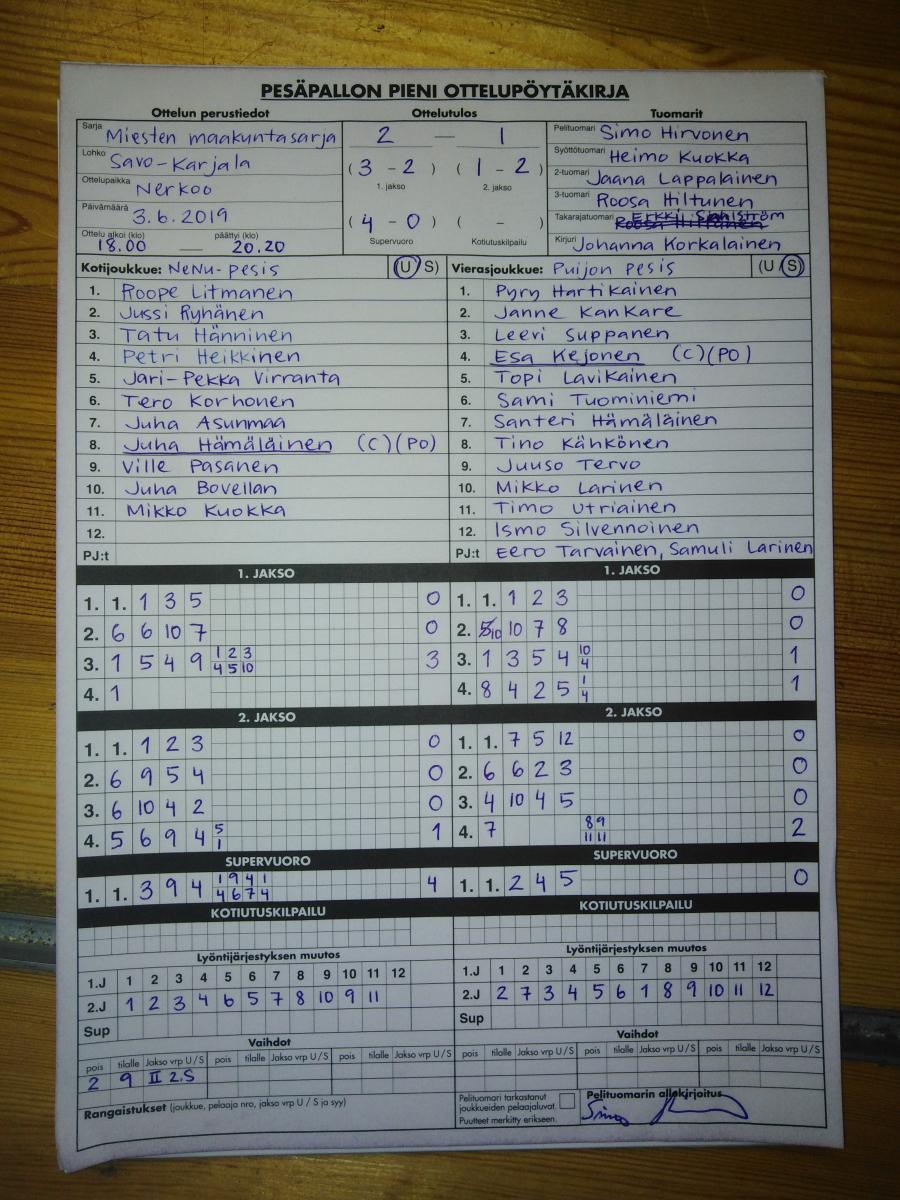 PESÄPALLON PIENI OTTELUPÖYTÄKIRJA
Ottelun perustiedot Ottelutulos Tuomarit
Sarja Miesten maakuntasarja 2 — 1 Pelituomari Simo Hirvonen
Lohko Savo-Karjala (3 - 2) (1 - 2) Syöttötuomari Heimo Kuokka
1. jakso 2. jakso
Ottelupaikka Nerkoo 2-tuomari Jaana Lappalainen
3-tuomari Roosa Hiltunen
Päivämäärä 3.6.2019 (4 - 0) ( - ) Takarajatuomari Erkki
Ottelu alkoi (klo) 18.00 — päättyi (klo) 20.20 Supervuoro Kotiutuskilpailu Kirjuri Johanna Korkalainen
Kotijoukkue: NeNu-pesis (U S) Vierasjoukkue: Puijon Pesis (U S)
1. Roope Litmanen 1. Pyry Hartikainen
2. Jussi Ryhänen 2. Janne Kankare
3. Tatu Hänninen 3. Leevi Suppanen
4. Petri Heikkinen 4. Esa Kejonen (C)(PO)
5. Jari-Pekka Virranta 5. Topi Lavikainen
6. Tero Korhonen 6. Sami Tuominiemi
7. Juha Asunmaa 7. Santeri Hämäläinen
8. Juha Hämäläinen (C)(PO) 8. Tino Kähkönen
9. Ville Pasanen 9. Juuso Tervo
10. Juha Bovellan 10. Mikko Larinen
11. Mikko Kuokka 11. Timo Utriainen
12. 12. Ismo Silvennoinen
PJ:t PJ:t Eero Tarvainen, Samuli Larinen
1. JAKSO 1. JAKSO
1. 1. 1 3 5 0 1. 1. 1 2 3 0
2. 6 6 10 7 0 2. 5 10 10 7 8 0
3. 1 5 4 9 1 2 3 4 5 10 3 3. 1 3 5 4 10 4 1
4. 1 4. 8 4 2 5 1 4 1
2. JAKSO 2. JAKSO
1. 1. 1 2 3 0 1. 1. 7 5 12 0
2. 6 9 5 4 0 2. 6 6 2 3 0
3. 6 10 4 2 0 3. 4 10 4 5 0
4. 5 6 9 4 5 1 1 4. 7 8 9 11 11 2
SUPERVUORO SUPERVUORO
1. 1. 3 9 4 1 9 4 1 4 6 7 4 4 1. 1. 2 4 5 0
KOTIUTUSKILPAILU KOTIUTUSKILPAILU
Lyöntijärjestyksen muutos Lyöntijärjestyksen muutos
1.J 1 2 3 4 5 6 7 8 9 10 11 12 1.J 1 2 3 4 5 6 7 8 9 10 11 12
2.J 1 2 3 4 6 5 7 8 10 9 11 2.J 2 7 3 4 5 6 1 8 9 10 11 12
Sup Sup
Vaihdot Vaihdot
pois tilalle Jakso vrp U/S pois tilalle Jakso vrp U/S pois tilalle Jakso vrp U/S pois tilalle Jakso vrp U/S pois tilalle Jakso vrp U/S pois tilalle Jakso vrp U/S
2 9 II 2.S
Rangaistukset (joukkue, pelaaja nro, jakso vrp U / S ja syy) Pelituomari tarkastanut joukkueiden pelaajaluvat. Pelituomarin allekirjoitus
Puutteet merkitty erikseen. Simo